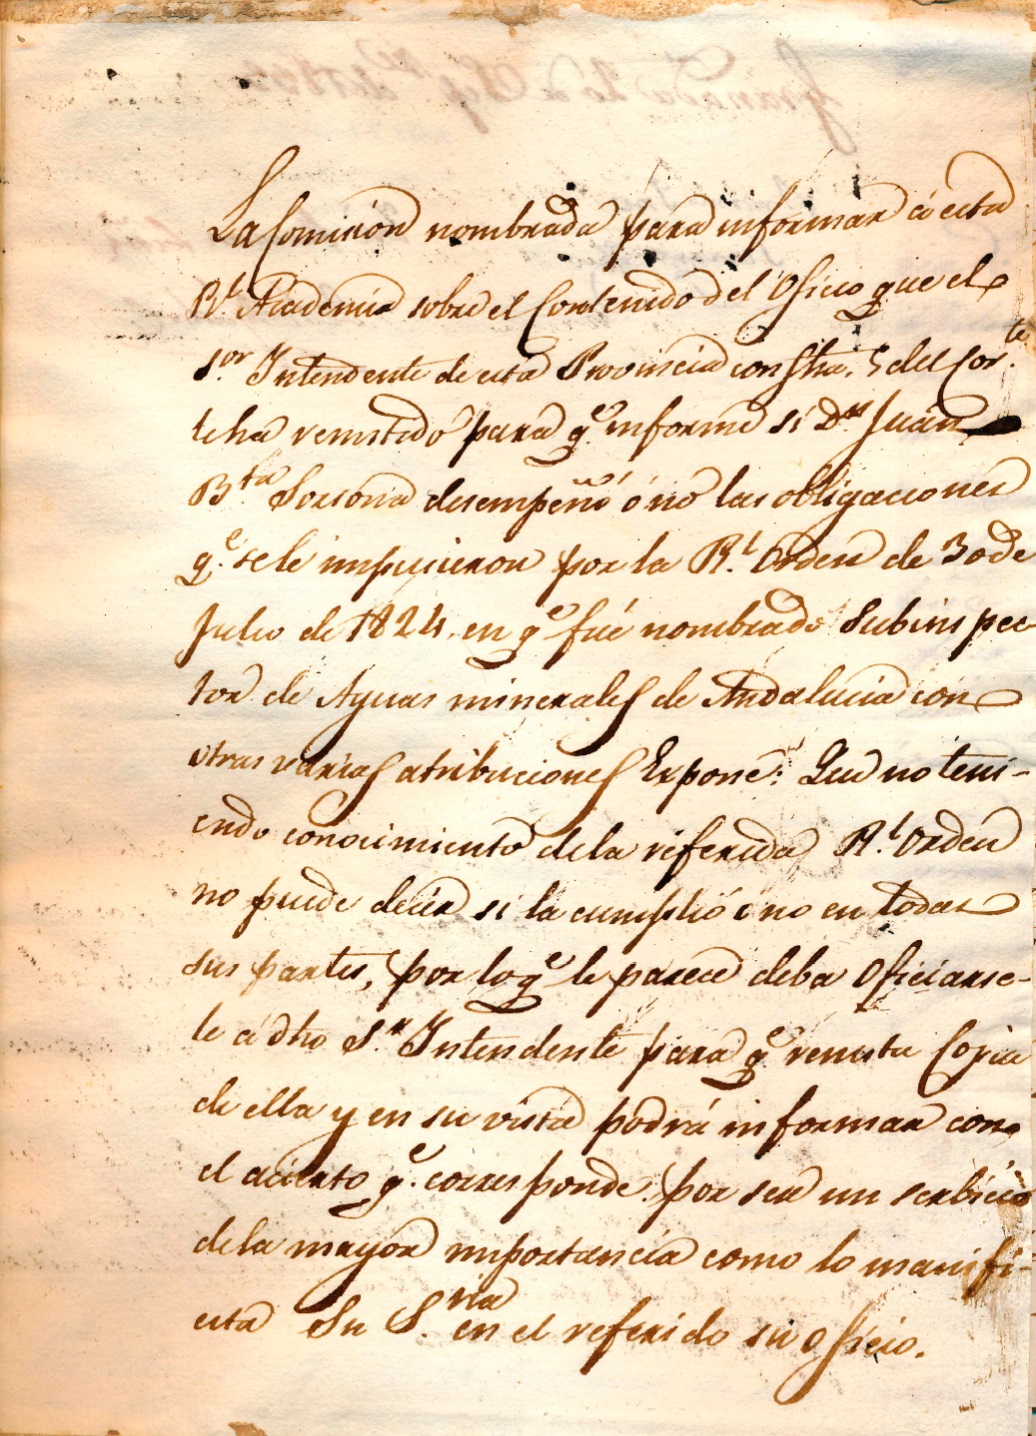 La Comision nombrada para informar á esta
Rl. Academia sobre el Contenido del Oficio que el
Sor. Intendente de esta Provincia con fha. 5 del Corte.
le ha remitido para qe. informe si Dn. Juan
Bta. Sorsona desempeñó ó no las obligaciones
qe. se le impusieron por la Rl. Orden de 30 de
Julio de 1824, en qe. fué nombrado Subinspec-
tor de Aguas minerales de Andalucia con
otras varias atribuciones Expone: Que no teni-
endo conocimiento de la referida Rl. Orden
no puede decir si la cumplió ó no en todas
sus partes, por lo qe. le parece deba Oficiarse-
le á dho Sr. Intendente para qe. remita Copia
de ella y en su vista podrá informar con
el acierto qe. corresponde por ser un serbicio
de la mayor importancia como lo manifi-
esta Su S.ria en el referido su oficio.